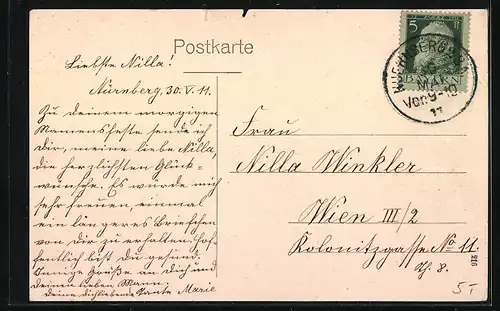 Postkarte
Liebste Nilla!
Nürnberg, 30.V.11.
Zu deinem morgigen
Namensfeste sende ich
dir, meine liebe Nilla,
die herzlichsten Glück-
wünsche. Es würde mich
sehr freuen, einmal
ein längeres Briefchen
von dir zu erhalten. Hof-
fentlich bist du gesund.
Innige Grüße an dich und
deinen lieben Mann,
deine dichliebende Tante Marie
5
BAYERN
Vor. 9-10
11
Frau
Nilla Winkler
Wien III/2
Kolonitzgasse No 11.
Th. 8.
216
5.-